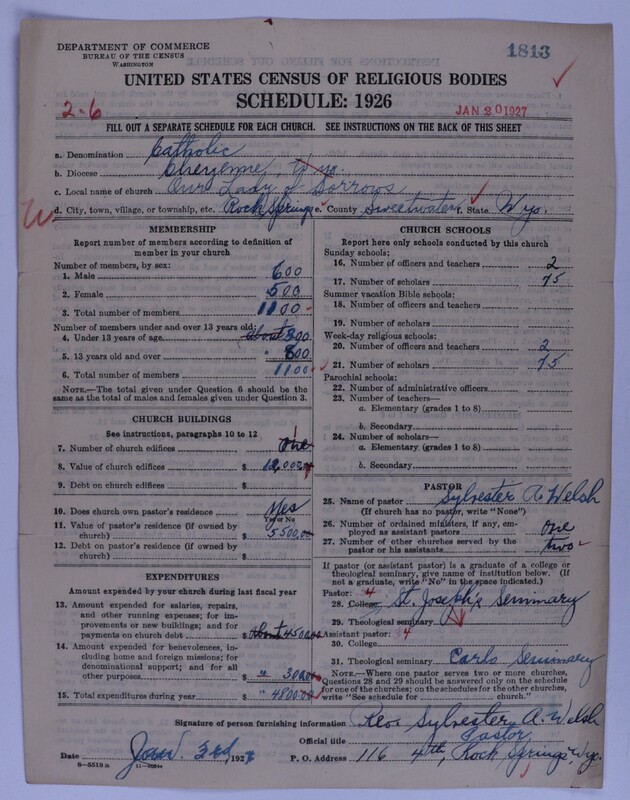 DEPARTMENT OF COMMERCE
BUREAU OF THE CENSUS
WASHINGTON
1813
UNITED STATES CENSUS OF RELIGIOUS BODIES
SCHEDULE: 1926
2-6
JAN 20 1927
FILL OUT A SEPARATE SCHEDULE FOR EACH CHURCH. SEE INSTRUCTIONS ON THE BACK OF THIS SHEET
a. Denomination Catholic
b. Diocese Cheyenne, Wyo.
c. Local name of church Our Lady of Sorrows
d. City, town, village, or township, etc. Rock Springs e. County Sweetwater f. State Wyo.
MEMBERSHIP
Report number of members according to definition of
member in your church
Number of members, by sex:
1. Male 600
2. Female 500
3. Total number of members 1100
Number of members under and over 13 years old:
4. Under 13 years of age About 300
5. 13 years old and over " 800
6. Total number of members 1100
NOTE.—The total given under Question 6 should be
the same as the total of males and females given under Question 3.
CHURCH BUILDINGS
See instructions, paragraphs 10 to 12
7. Number of church edifices one
8. Value of church edifices $ 12,000
9. Debt on church edifices $
10. Does church own pastor's residence? Yes
Yes or No
11. Value of pastor's residence (if owned by
church) $ 5500.00
12. Debt on pastor's residence (if owned by
church) $
EXPENDITURES
Amount expended by your church during last fiscal year
13. Amount expended for salaries, repairs,
and other running expenses; for im-
provements or new buildings; and for
payments on church debt $ About 4500.00
14. Amount expended for benevolences, in-
cluding home and foreign missions; for
denominational support; and for all
other purposes $ " 300.00
15. Total expenditures during year $ " 4800.00
CHURCH SCHOOLS
Report here only schools conducted by this church
Sunday schools:
16. Number of officers and teachers 2
17. Number of scholars 75
Summer vacation Bible schools:
18. Number of officers and teachers
19. Number of scholars
Week-day religious schools:
20. Number of officers and teachers 2
21. Number of scholars 75
Parochial schools:
22. Number of administrative officers
23. Number of teachers—
a. Elementary (grades 1 to 8)
b. Secondary
24. Number of scholars—
a. Elementary (grades 1 to 8)
b. Secondary
PASTOR
25. Name of pastor Sylvester A. Welsh
(If church has no pastor, write "None")
26. Number of ordained ministers, if any, em-
ployed as assistant pastors one
27. Number of other churches served by the
pastor or his assistants two
If pastor (or assistant pastor) is a graduate of a college or
theological seminary, give name of institution below. (If
not a graduate, write "No" in the space indicated.)
Pastor: 4
28. College St. Joseph's Seminary
29. Theological seminary
Assistant pastor: 4
30. College
31. Theological seminary Carlo Seminary
NOTE.—Where one pastor serves two or more churches,
Questions 28 and 29 should be answered only on the schedule
for one of the churches; on the schedules for the other churches,
write "See schedule for church."
Signature of person furnishing information Sylvester A. Welsh
Official title Pastor
Date Jan. 3rd, 1927 P. O. Address 116 4th, Rock Springs, Wyo.